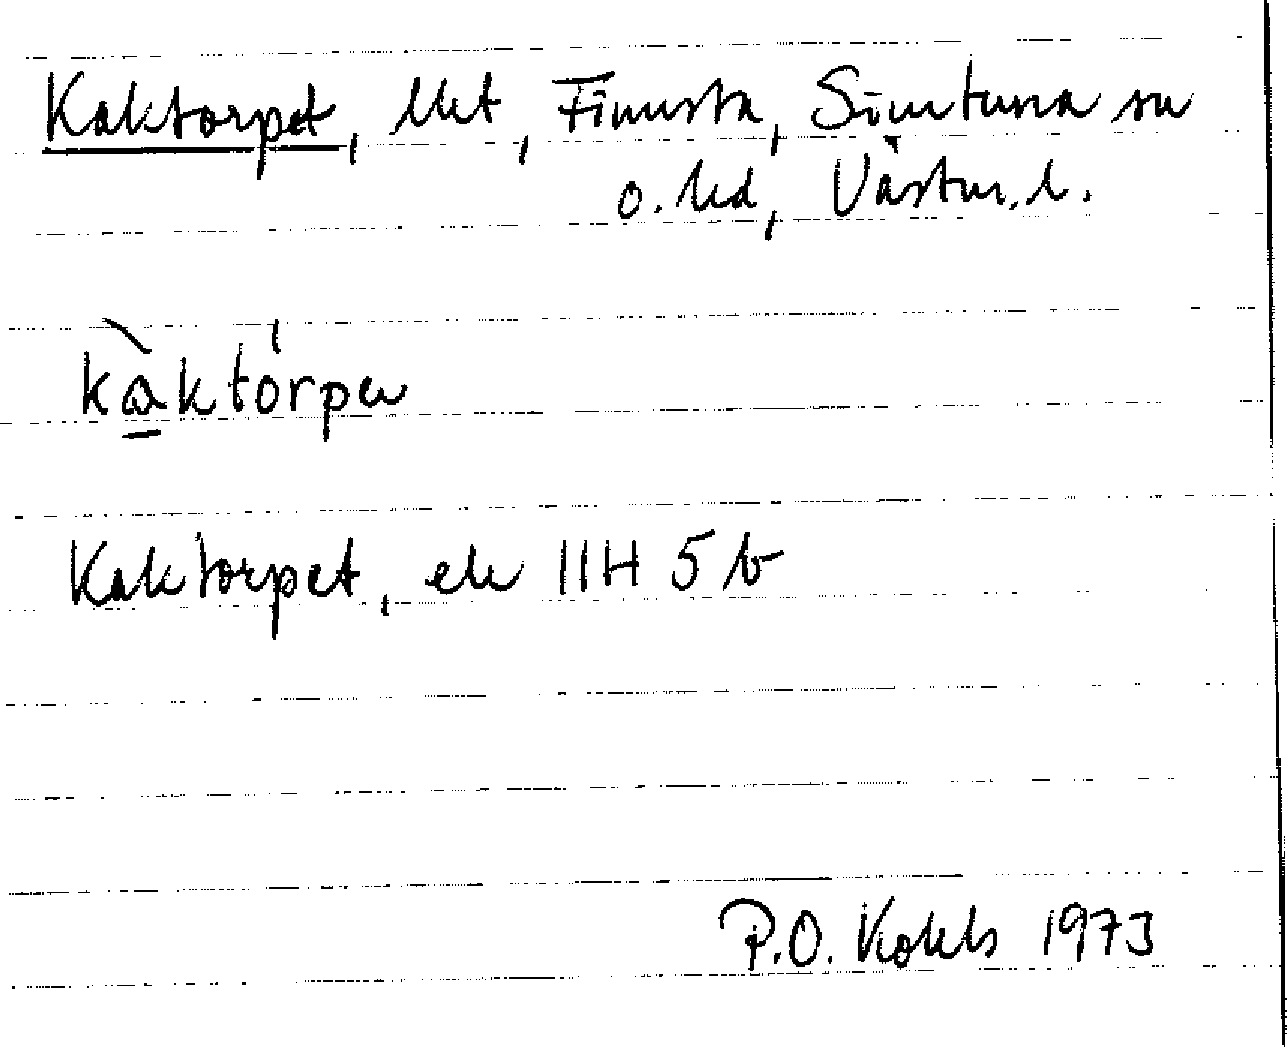 Kaktorpet, lht, Finnsta, Simtuna sn
o. hd, Västm. l.
kàktórpe
Kaktorpet, ek 11H 5b
P.O. 1973